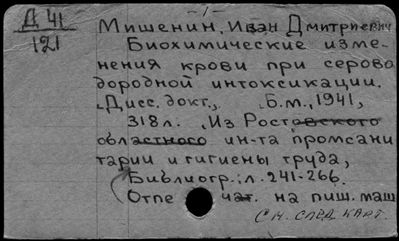 Д 41
121
- 1 -
Мишенин, Иван Дмитриевич
Биохимические изме-
нения крови при серово
дородной интоксикации.
„Дисс. докт.„ Б.м., 1941,
318л. „Из Ростовского
областного ин-та промсани
тарии и гигиены труда„
Библиогр.: л. 241-266.
Отпечат. на пиш. маш
см. след. карт.